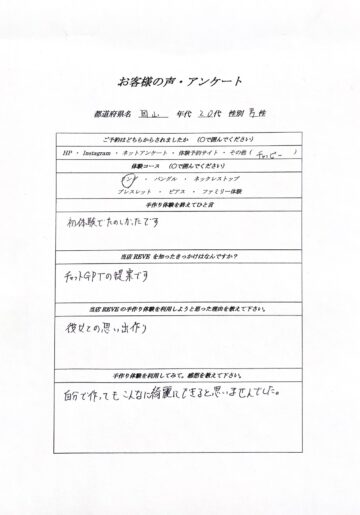 お客様の声・アンケート
都道府県名 岡山 年代 20代 性別 男性
ご予約はどちらからされましたか (○で囲んでください)
HP ・ Instagram ・ ネットアンケート ・ 体験予約サイト ・ その他 ( チャッピー )
体験コース (○で囲んでください)
リング ・ バングル ・ ネックレストップ
ブレスレット ・ ピアス ・ ファミリー体験
手作り体験を終えてひと言
初体験でたのしかったです
当店 REVE を知ったきっかけはなんですか?
チャットGPTの提案です
当店 REVE の手作り体験を利用しようと思った理由を教えて下さい。
彼女との思い出作り
手作り体験を利用してみて。感想を教えて下さい。
自分で作ってもこんなに綺麗にできると思いませんでした。